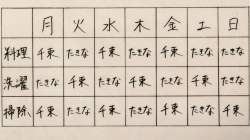 月 火 水 木 金 土 日
料理 千束 たきな 千束 たきな 千束 たきな 千束
洗濯 たきな 千束 たきな 千束 たきな 千束 たきな
掃除 千束 たきな 千束 たきな 千束 たきな 千束